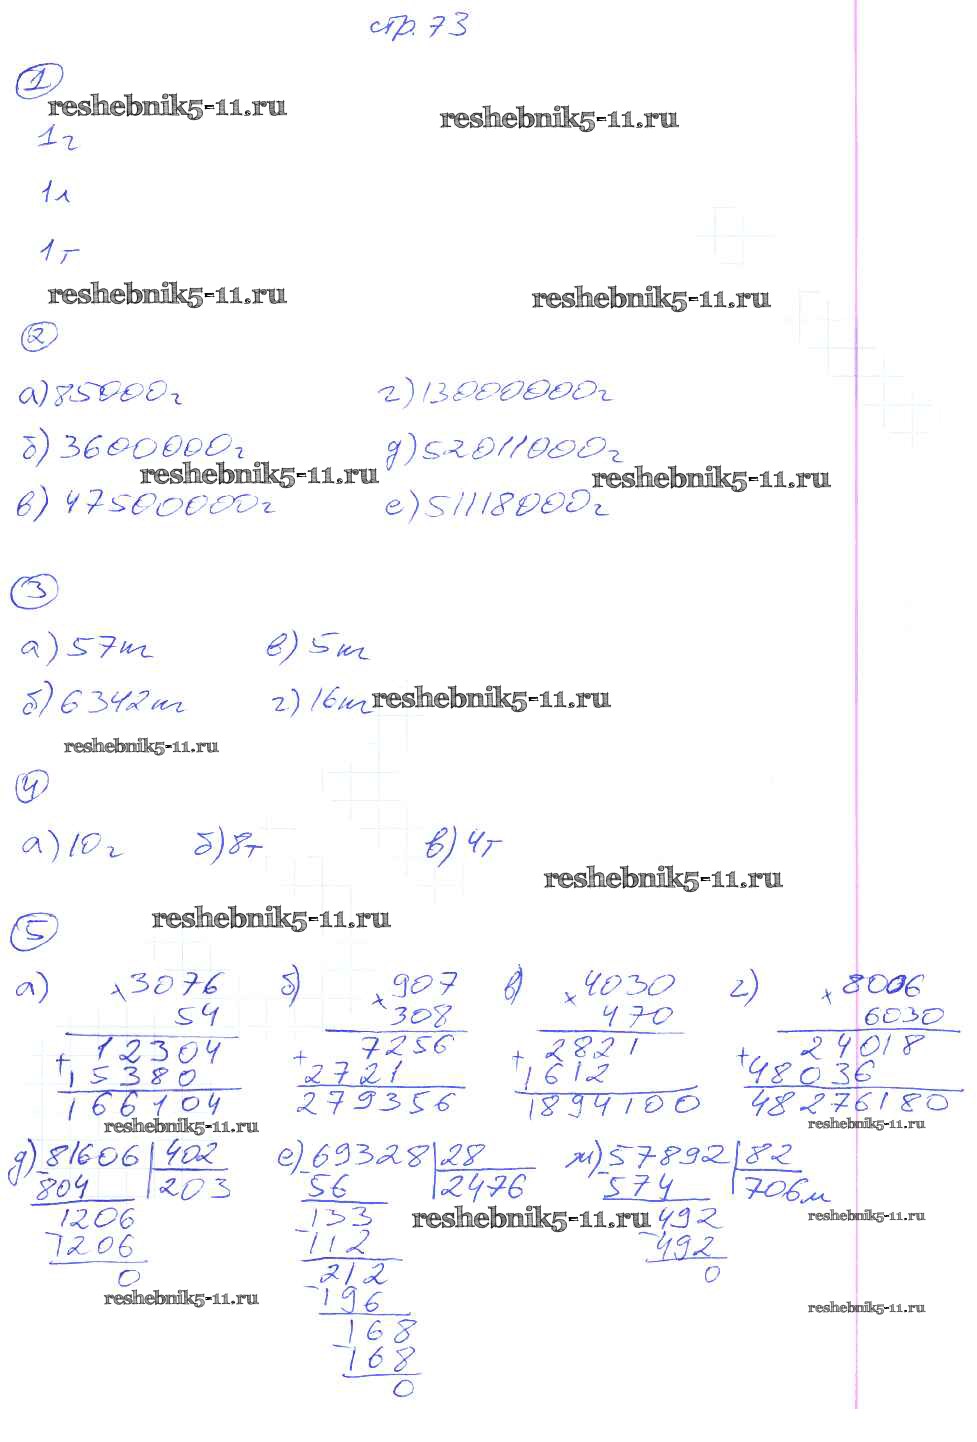 стр. 73
1
reshebnik5-11.ru reshebnik5-11.ru
1г
1л
1т
reshebnik5-11.ru reshebnik5-11.ru
2
а) 85000г г) 13000000г
б) 3600000г д) 52011000г
reshebnik5-11.ru reshebnik5-11.ru
в) 475000000г е) 51118000г
3
а) 57т в) 5т
б) 6342т г) 16т reshebnik5-11.ru
reshebnik5-11.ru
4
а) 10г б) 8т в) 4т
reshebnik5-11.ru
reshebnik5-11.ru
5
а) × 3076 б) × 907 в) × 4030 г) × 8006
54 308 470 6030
+ 12304 + 7256 + 2821 + 24018
15380 2721 1612 48036
166104 279356 1894100 48276180
reshebnik5-11.ru reshebnik5-11.ru
д) 81606 | 402 е) 69328 | 28 ж) 57892 | 82
- 804 203 - 56 2476 - 574 706м
1206 133 reshebnik5-11.ru 492 reshebnik5-11.ru
- 1206 - 112 - 492
0 212 0
reshebnik5-11.ru - 196 reshebnik5-11.ru
168
- 168
0